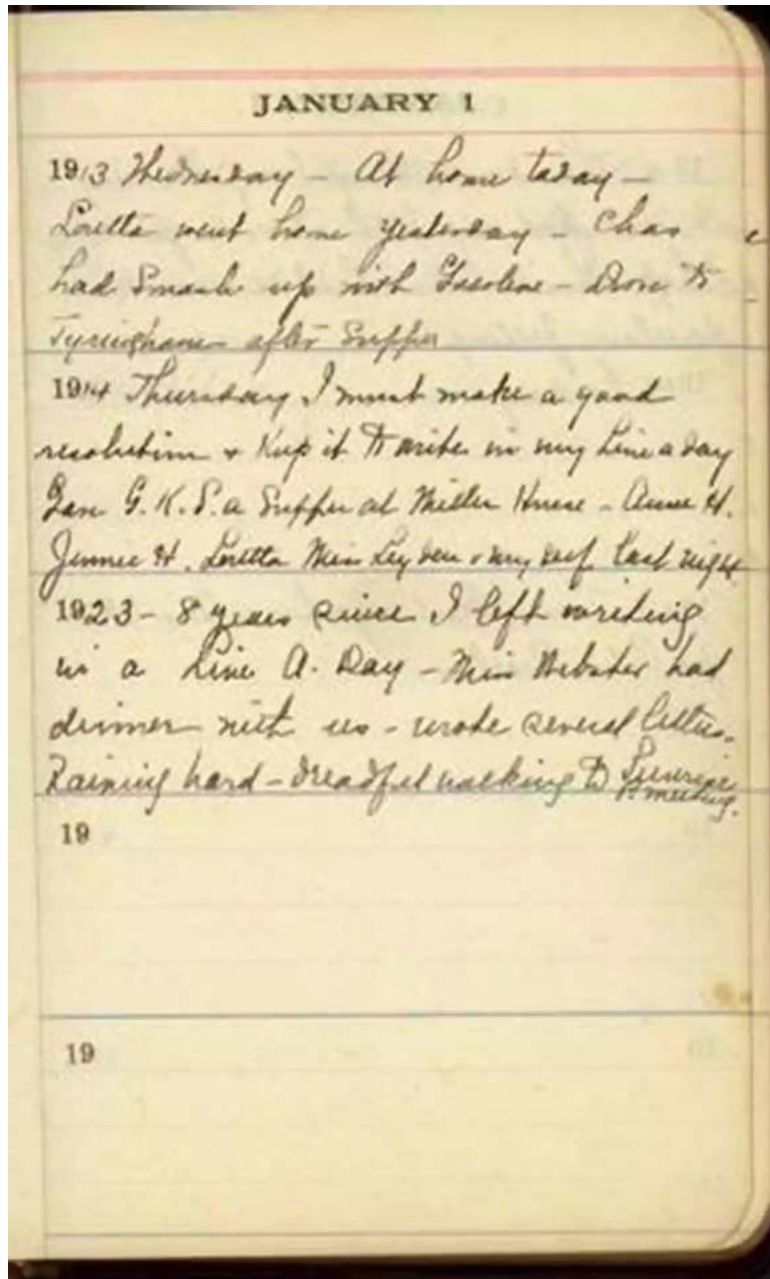 JANUARY 1
1913 Wednesday – At home today –
Loretta went home yesterday – Chas
had Smash up with Gasoline – Drove to
Tyringham after Supper
1914 Thursday I must make a good
resolution & Keep it to write in my Line a day
G. K. S. a Supper at Miller House – Annie H.
Jennie H. Loretta Miss Leyden & my self last night
1923 – 8 years since I left writing
in a Line A. Day – Miss Webster had
dinner with us – wrote several letters.
Raining hard – dreadful walking to Sunrise
P. meeting.
19
19